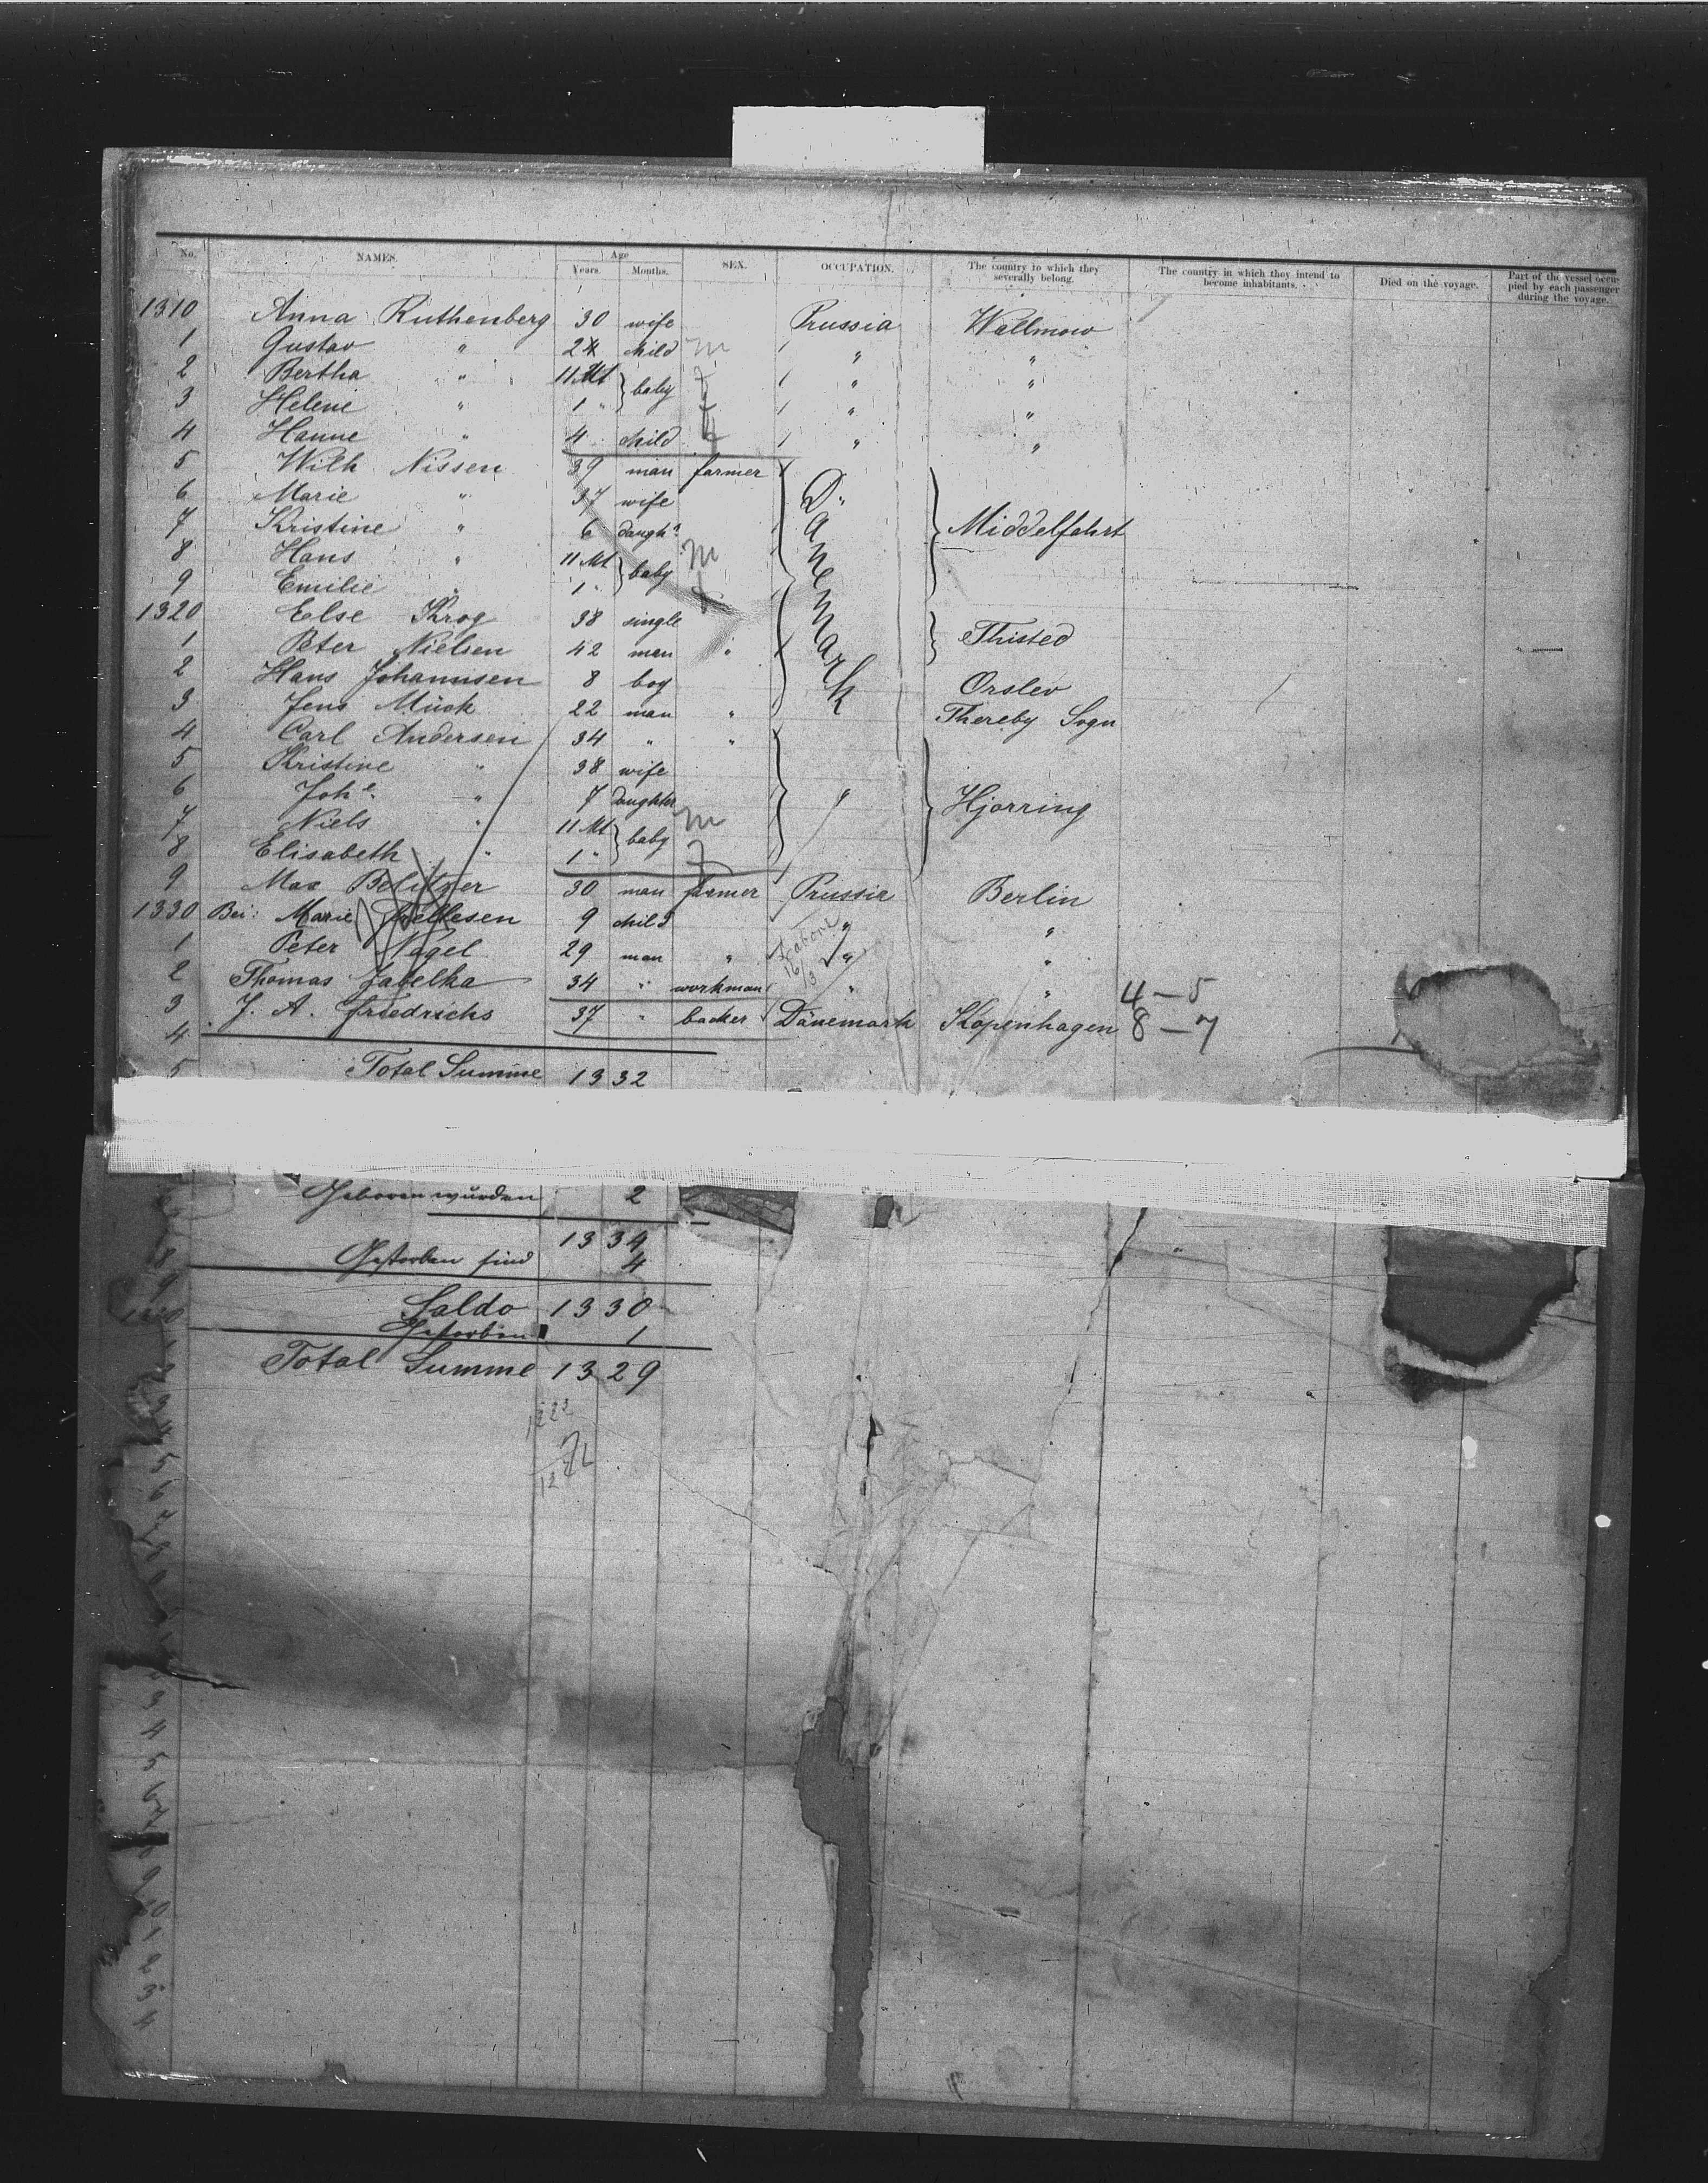 No. NAMES. Age Years. Months. SEX. OCCUPATION. The country to which they severally belong. The country in which they intend to become inhabitants. Died on the voyage. Part of the vessel occupied by each passenger during the voyage.
1310 Anna Ruthenberg 30 wife Prussia Wallmow
1 Gustav " 2 child m " "
2 Bertha " 11 Mt } baby f " "
3 Helene " 1 " f " "
4 Hanne " 4 child f " "
5 Wilh Nissen 39 man farmer Dänemark
6 Marie " 37 wife
7 Kristine " 6 daugh. } Middelfahrt
8 Hans " 11 Mt } baby m
9 Emilie " 1 " f
1320 Else Krog 38 single
1 Peter Nielsen 42 man " } Thisted
2 Hans Johannsen 8 boy Orslev
3 Jens Mück 22 man " Thereby Sogn
4 Carl Andersen 34 " "
5 Kristine " 38 wife
6 Joh.e " 7 daughter " } Hjorring
7 Niels " 11 Mt } baby m
8 Elisabeth " 1 " f
9 Max Belitzer 30 man farmer Prussia Berlin
1330 Bei: Marie 9 child " "
1 Peter Nagel 29 man " " "
2 Thomas Jabelka 34 " workman " " 4 — 5
3 J. A. Friedrichs 37 " backer Dänemark Kopenhagen 8 — 7
4
5 Total Summe 1332
Geboren wurden 2
1334
Gestorben sind 4
Saldo 1330
Gestorben 1
Total Summe 1329